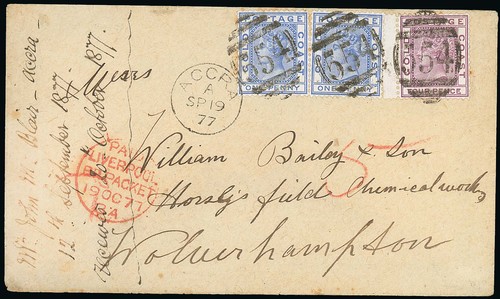 GOLD COAST
POSTAGE
ONE PENNY
554
POSTAGE
GOLD COAST
ONE PENNY
554
GOLD COAST
POSTAGE
FOUR PENCE
554
ACCRA
A
SP 19
77
Messrs
William Bailey & Son
Horsley's field Chemical works
Wolverhampton
5
PAID
LIVERPOOL
BR PACKET
19 OC 77
A
Mr John M. Blair - accra
12th September 1877.
received 20 October 1877.